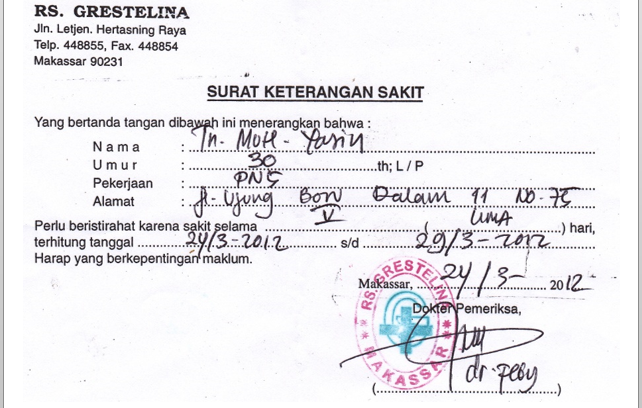 RS. GRESTELINA
Jln. Letjen. Hertasning Raya
Telp. 448855, Fax. 448854
Makassar 90231
SURAT KETERANGAN SAKIT
Yang bertanda tangan dibawah ini menerangkan bahwa :
N a m a : Tn. Muh. Yasin
U m u r : 30 th; L / P
Pekerjaan : PNS
Alamat : Jl. Ujung Bori Dalam 11 NO. 75
Perlu beristirahat karena sakit selama V ( LIMA ) hari,
terhitung tanggal 24/3-2012 s/d 29/3-2012
Harap yang berkepentingan maklum.
Makassar, 24/3- 2012
Dokter Pemeriksa,
RS. GRESTELINA
MAKASSAR
(dr. Feby)